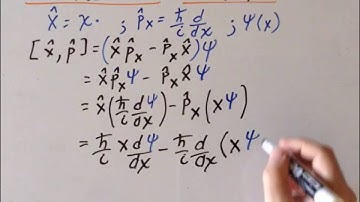 x̂ = x· ; p̂ₓ = ħ/i d/dx ; Ψ(x)
[x̂, p̂] = (x̂ p̂ₓ − p̂ₓ x̂)Ψ
= x̂ p̂ₓ Ψ − p̂ₓ x̂ Ψ
= x̂(ħ/i dΨ/dx) − p̂ₓ(xΨ)
= ħ/i x dΨ/dx − ħ/i d/dx (xΨ